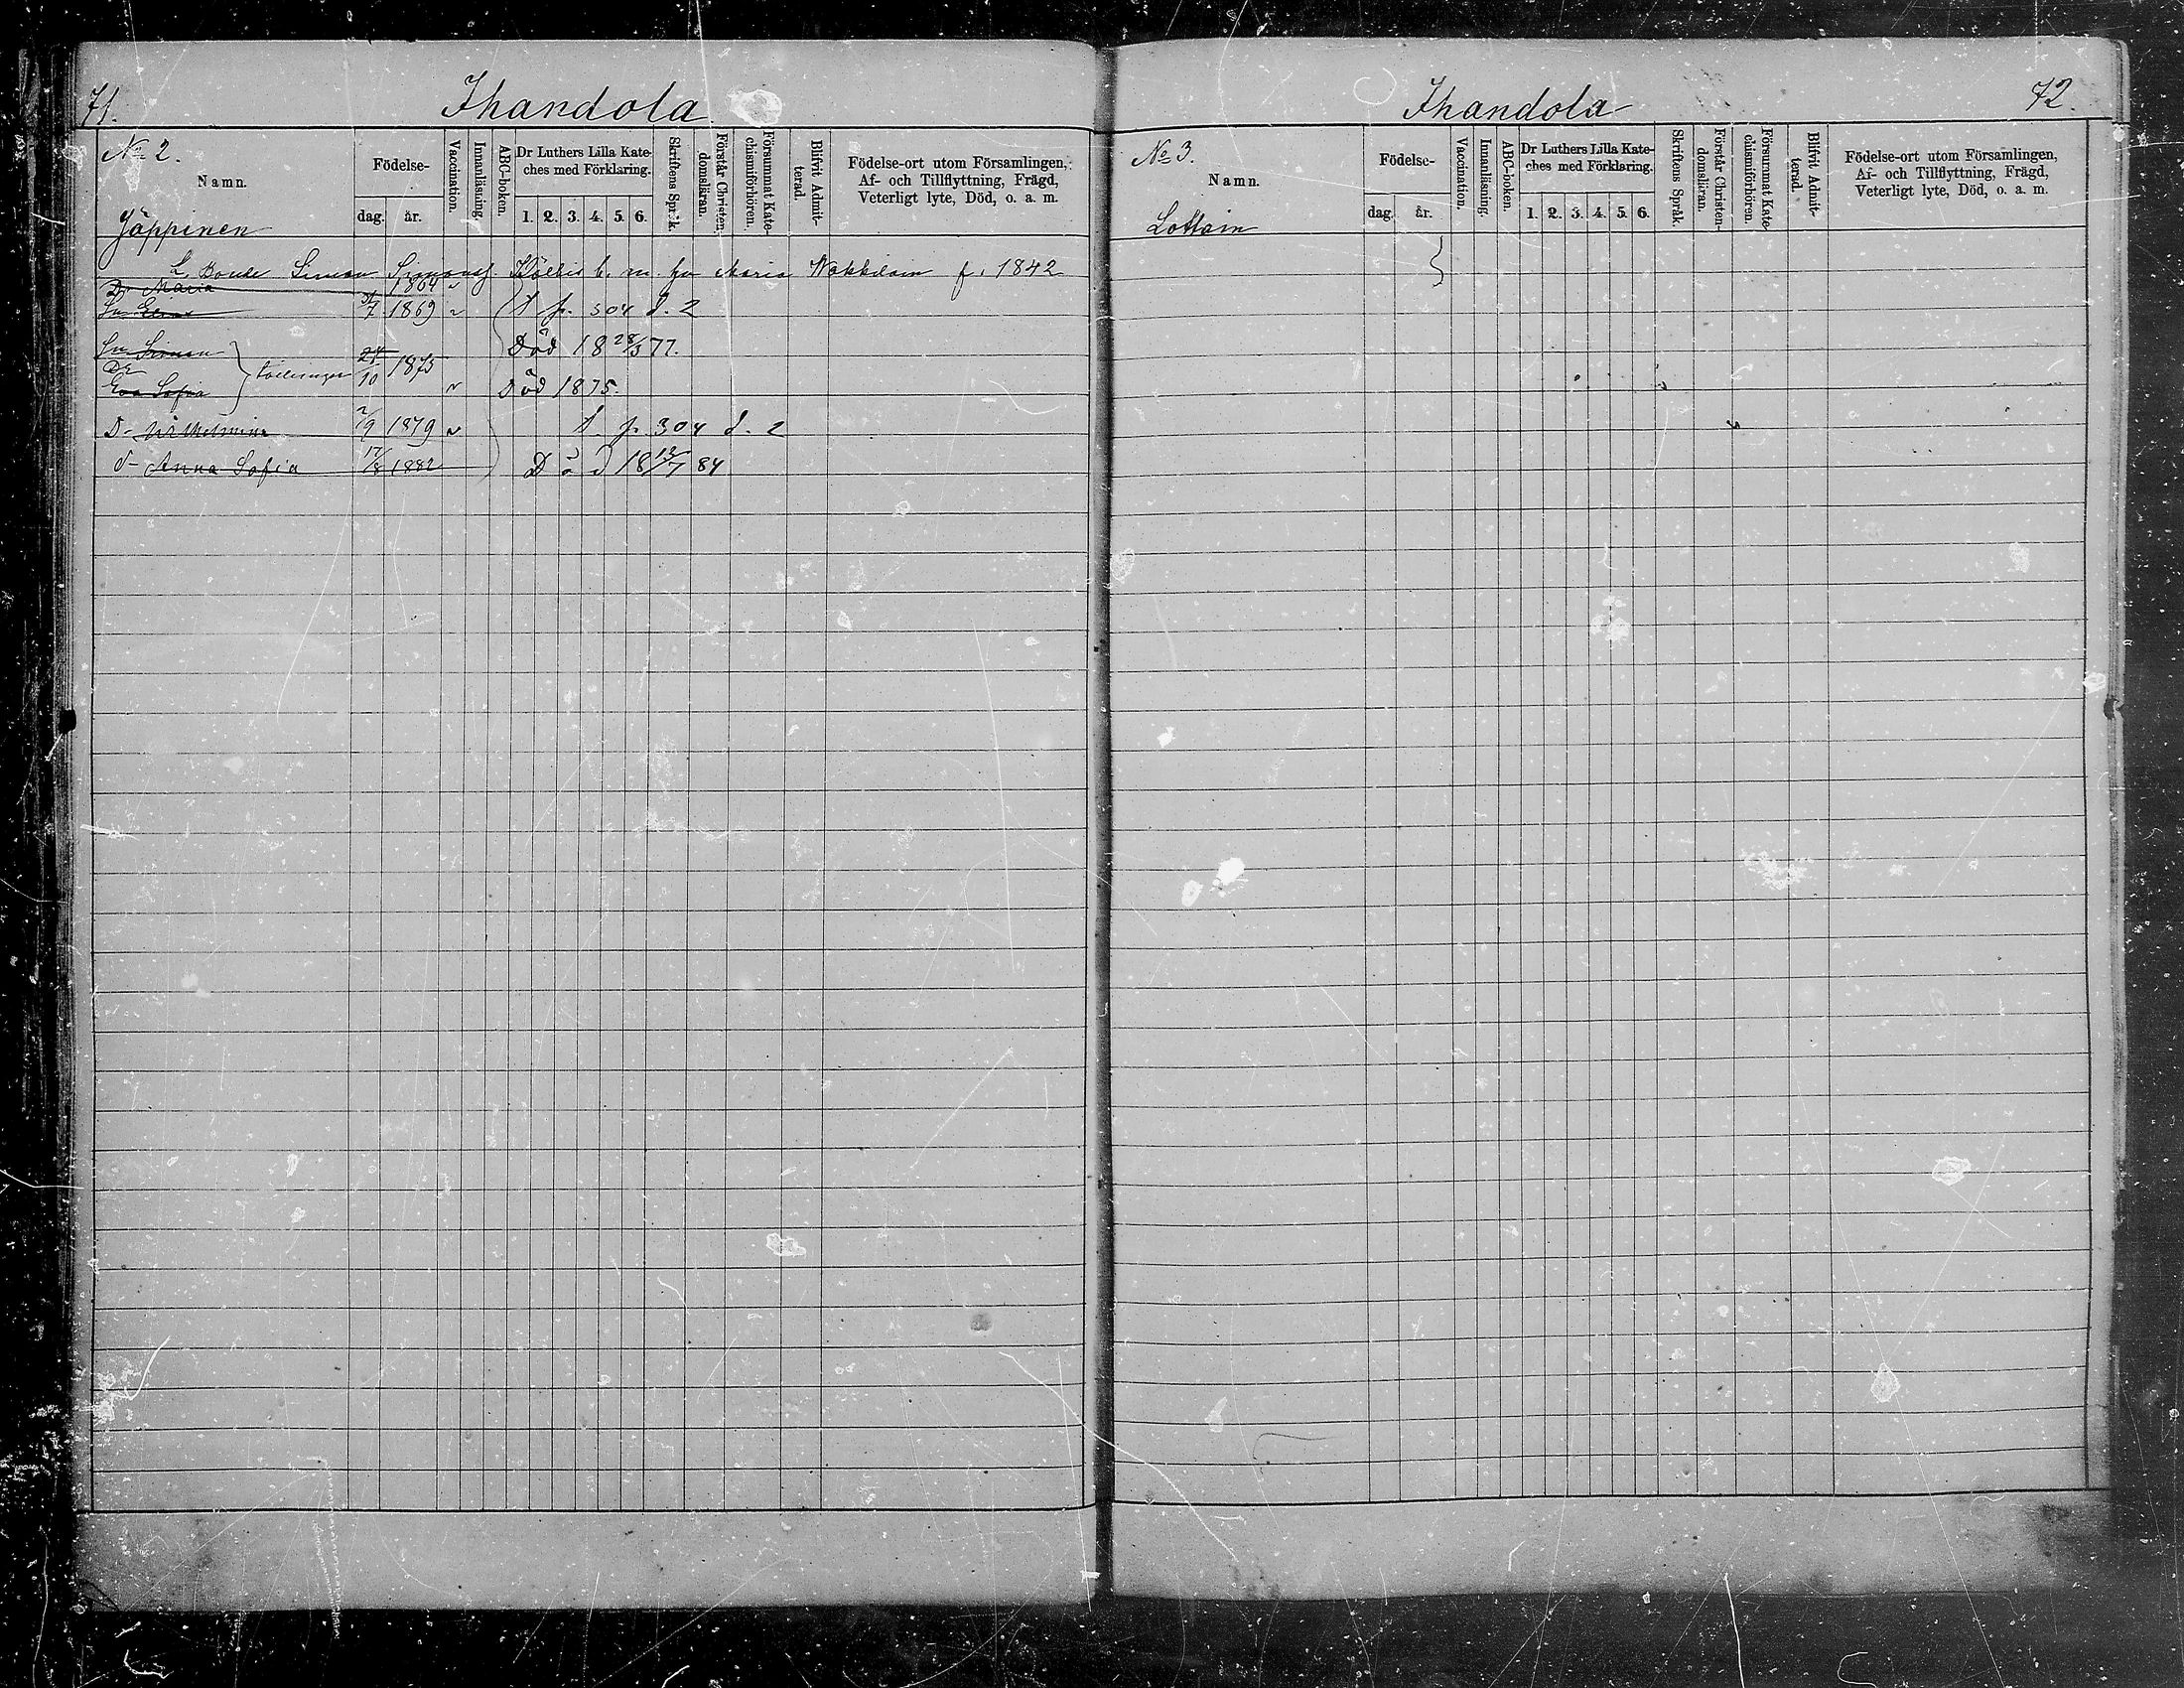 71.
Ihandola.
No 2.
Namn.
Födelse-
dag. år.
Vaccination.
Innanläsning.
ABC-boken.
Dr Luthers Lilla Kate-
ches med Förklaring.
1. 2. 3. 4. 5. 6.
Skriftens Språk.
Förstår Christen-
domsläran.
Försummat Kate-
chismiförhören.
Blifvit Admit-
terad.
Födelse-ort utom Församlingen,
Af- och Tillflyttning, Frägd,
Veterligt lyte, Död, o. a. m.
Jäppinen
L. Bonde Simon Simonss. b. m. hu Maria f. 1842
Dr Maria 1864
Sn 1869 p. 304 d. 2
Sn Simon 24/10 1875 Död 18 28/3 77.
Dr
Eva Sofia Död 1875.
D- Wilhelmina 2/9 1879 p. 304 d. 2
d- Anna Sofia 17/8 1882 Död 18 13/7 84
Ihandola
72.
No 3.
Namn.
Födelse-
dag. år.
Vaccination.
Innanläsning.
ABC-boken.
Dr Luthers Lilla Kate-
ches med Förklaring.
1. 2. 3. 4. 5. 6.
Skriftens Språk.
Förstår Christen-
domsläran.
Försummat Kate-
chismiförhören.
Blifvit Admit-
terad.
Födelse-ort utom Församlingen,
Af- och Tillflyttning, Frägd,
Veterligt lyte, Död, o. a. m.
Lottain